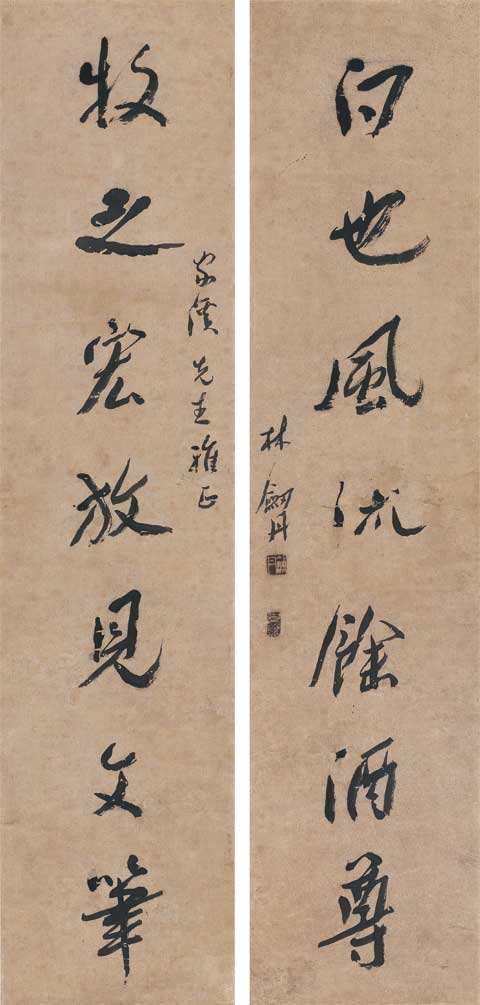 牧之宏放見文筆
家先生雅正
白也風流餘酒尊
林劍丹